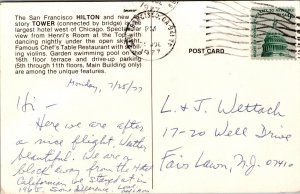 The San Francisco HILTON and new
story TOWER (connected by bridge)
largest hotel west of Chicago. Spectacular
view from Henri's Room at the Top
dancing nightly under the open skylight.
Famous Chef's Table Restaurant with
ing violins. Garden swimming pool on
16th floor terrace and drive-up parking
(5th through 11th floors, Main Building only)
are among the unique features.
PM
1977
POST CARD
Monday, 7/25/77
Hi,
Here we are after
a nice flight. Weather
beautiful. We are a
block away from the Hotel
Californian we stayed at in
1965. Some difference.
L. & J. Wettach
17-20 Well Drive
Fair Lawn, N.J. 07410